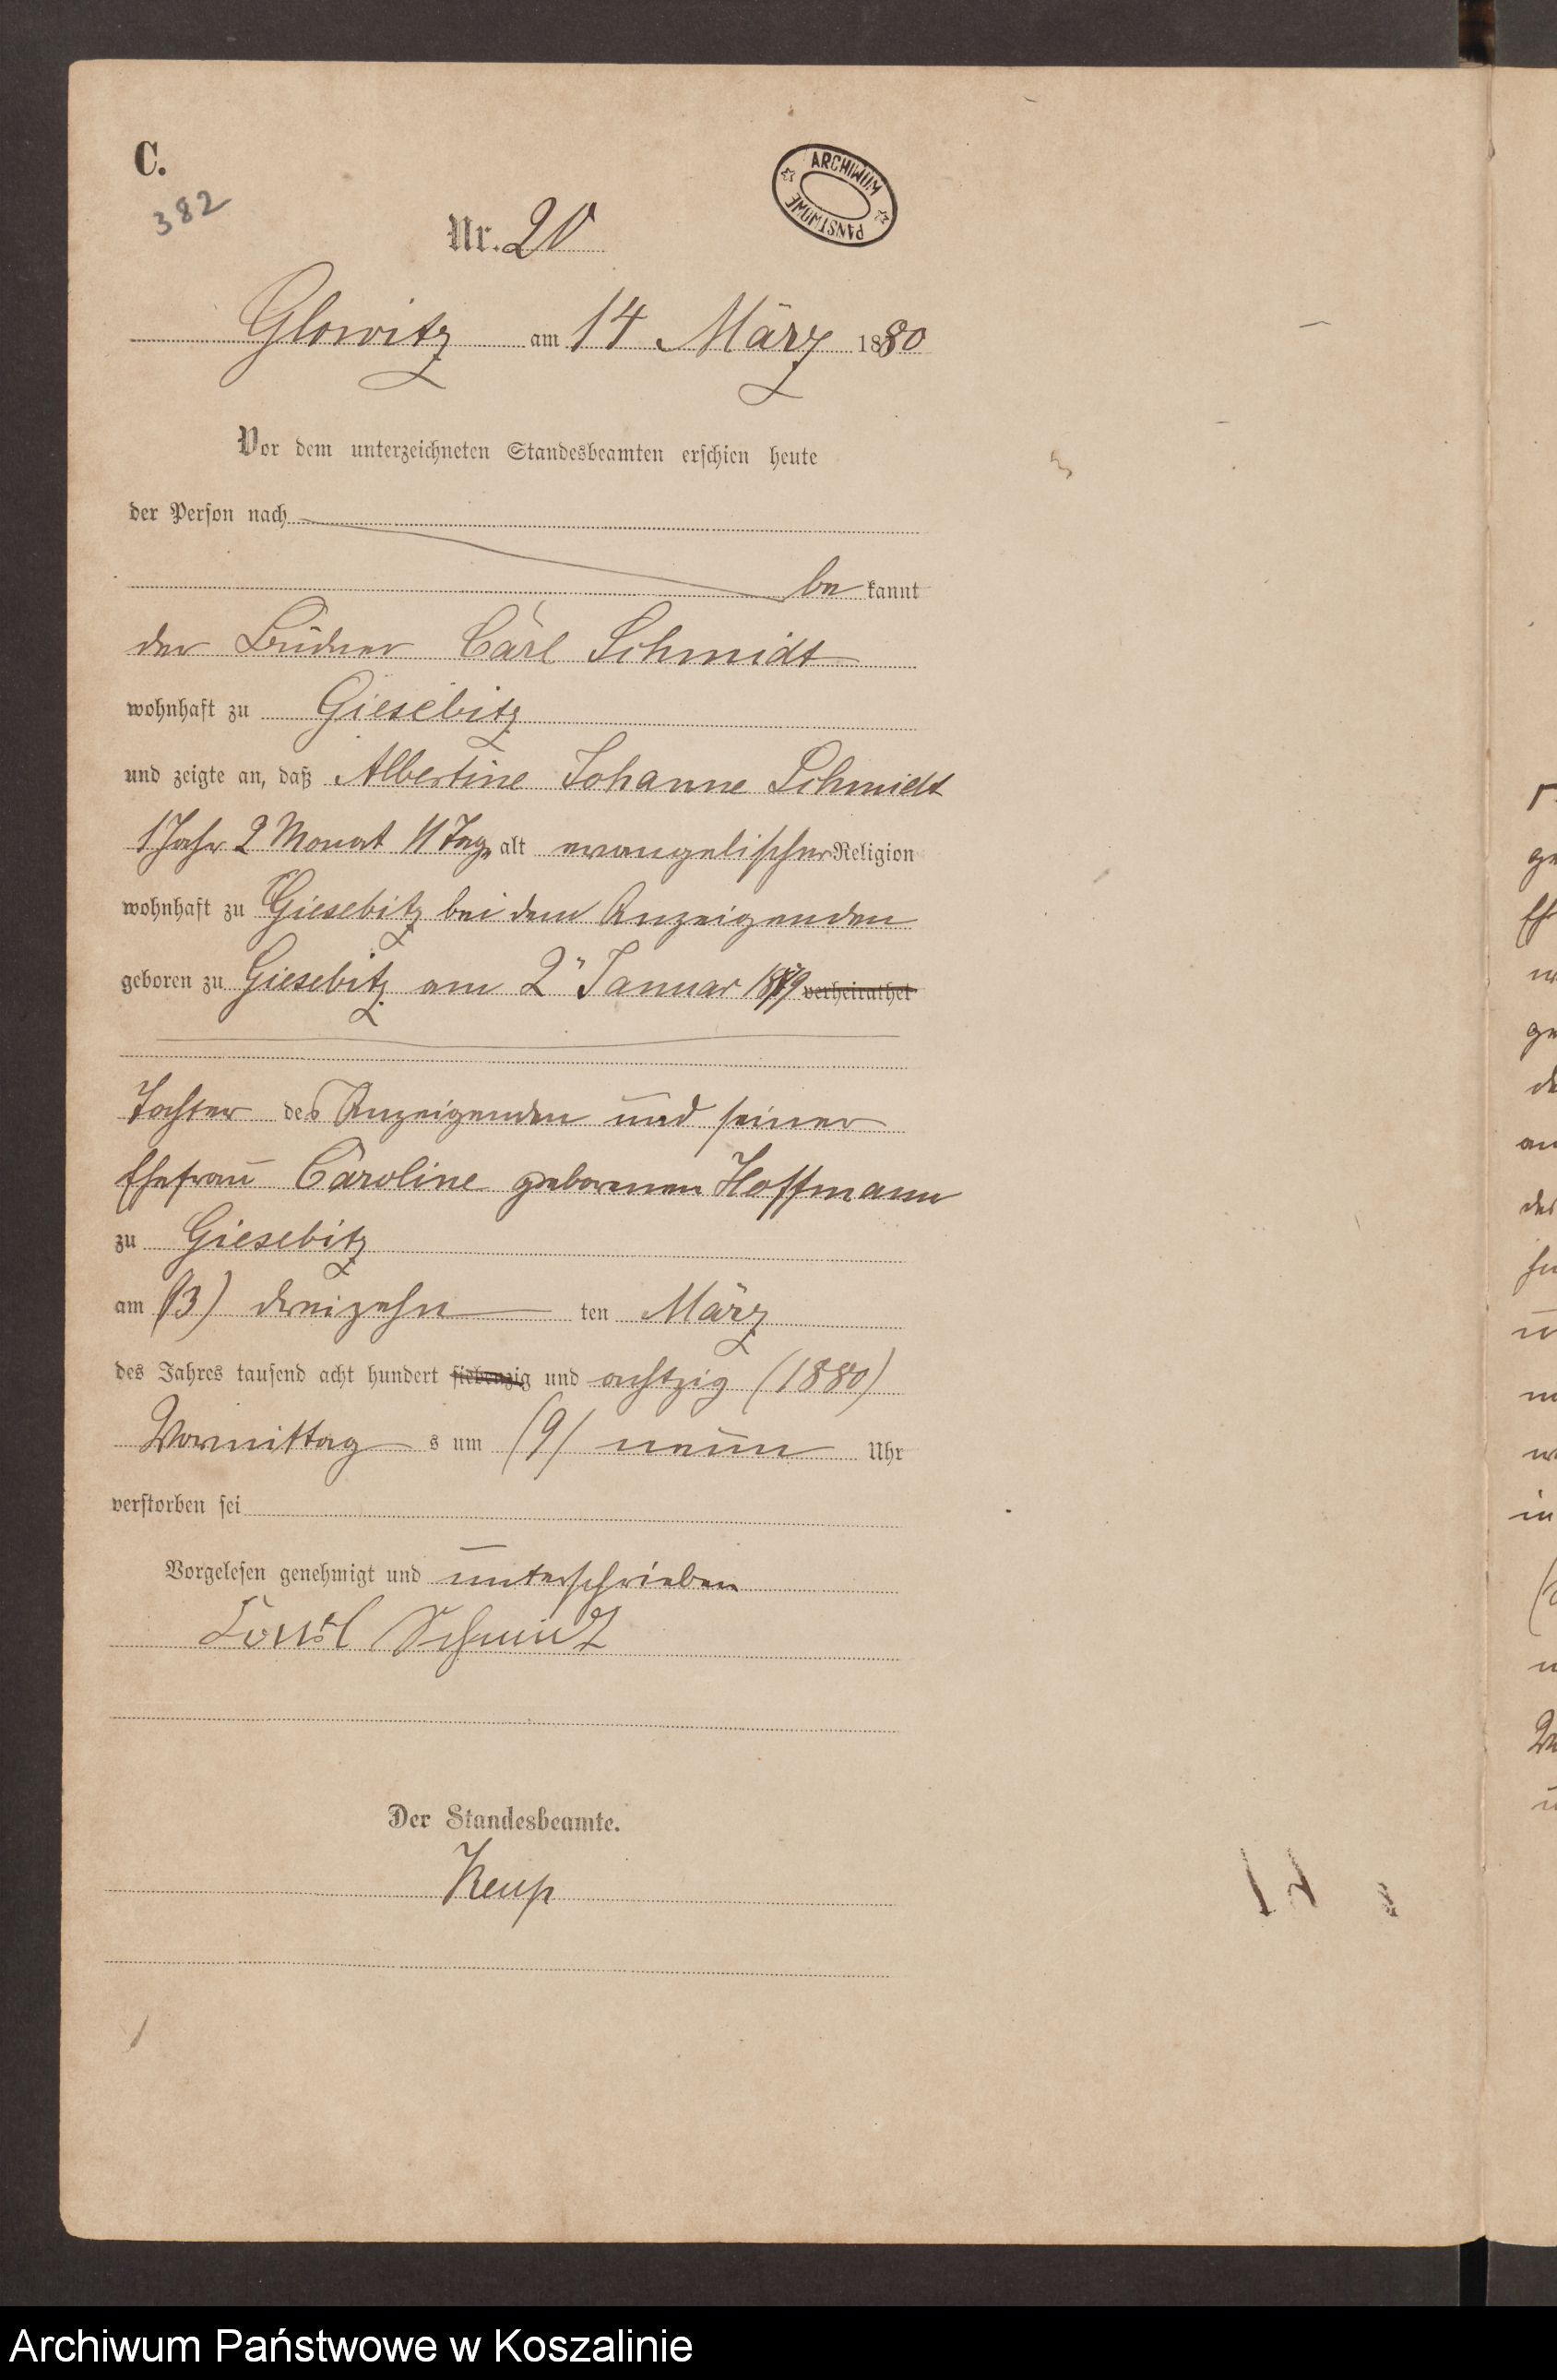 C.
382
ARCHIWUM PAŃSTWOWE
Nr. 20
Glowitz am 14 März 1880
Vor dem unterzeichneten Standesbeamten erschien heute
der Person nach
be kannt
der Büdner Carl Schmidt
wohnhaft zu Giesebitz
und zeigte an, daß Albertine Johanne Schmidt
1 Jahr 2 Monat 11 Tage alt evangelischer Religion
wohnhaft zu Giesebitz bei dem Anzeigenden
geboren zu Giesebitz am 2" Januar 1879 verheirathet
Tochter des Anzeigenden und seiner
Ehefrau Caroline geborenen Hoffmann
zu Giesebitz
am (13) dreizehn ten März
des Jahres tausend acht hundert siebenzig und achtzig (1880)
Vormittag s um (9) neun Uhr
verstorben sei
Vorgelesen genehmigt und unterschrieben
Carl Schmidt
Der Standesbeamte.
Keup
Archiwum Państwowe w Koszalinie